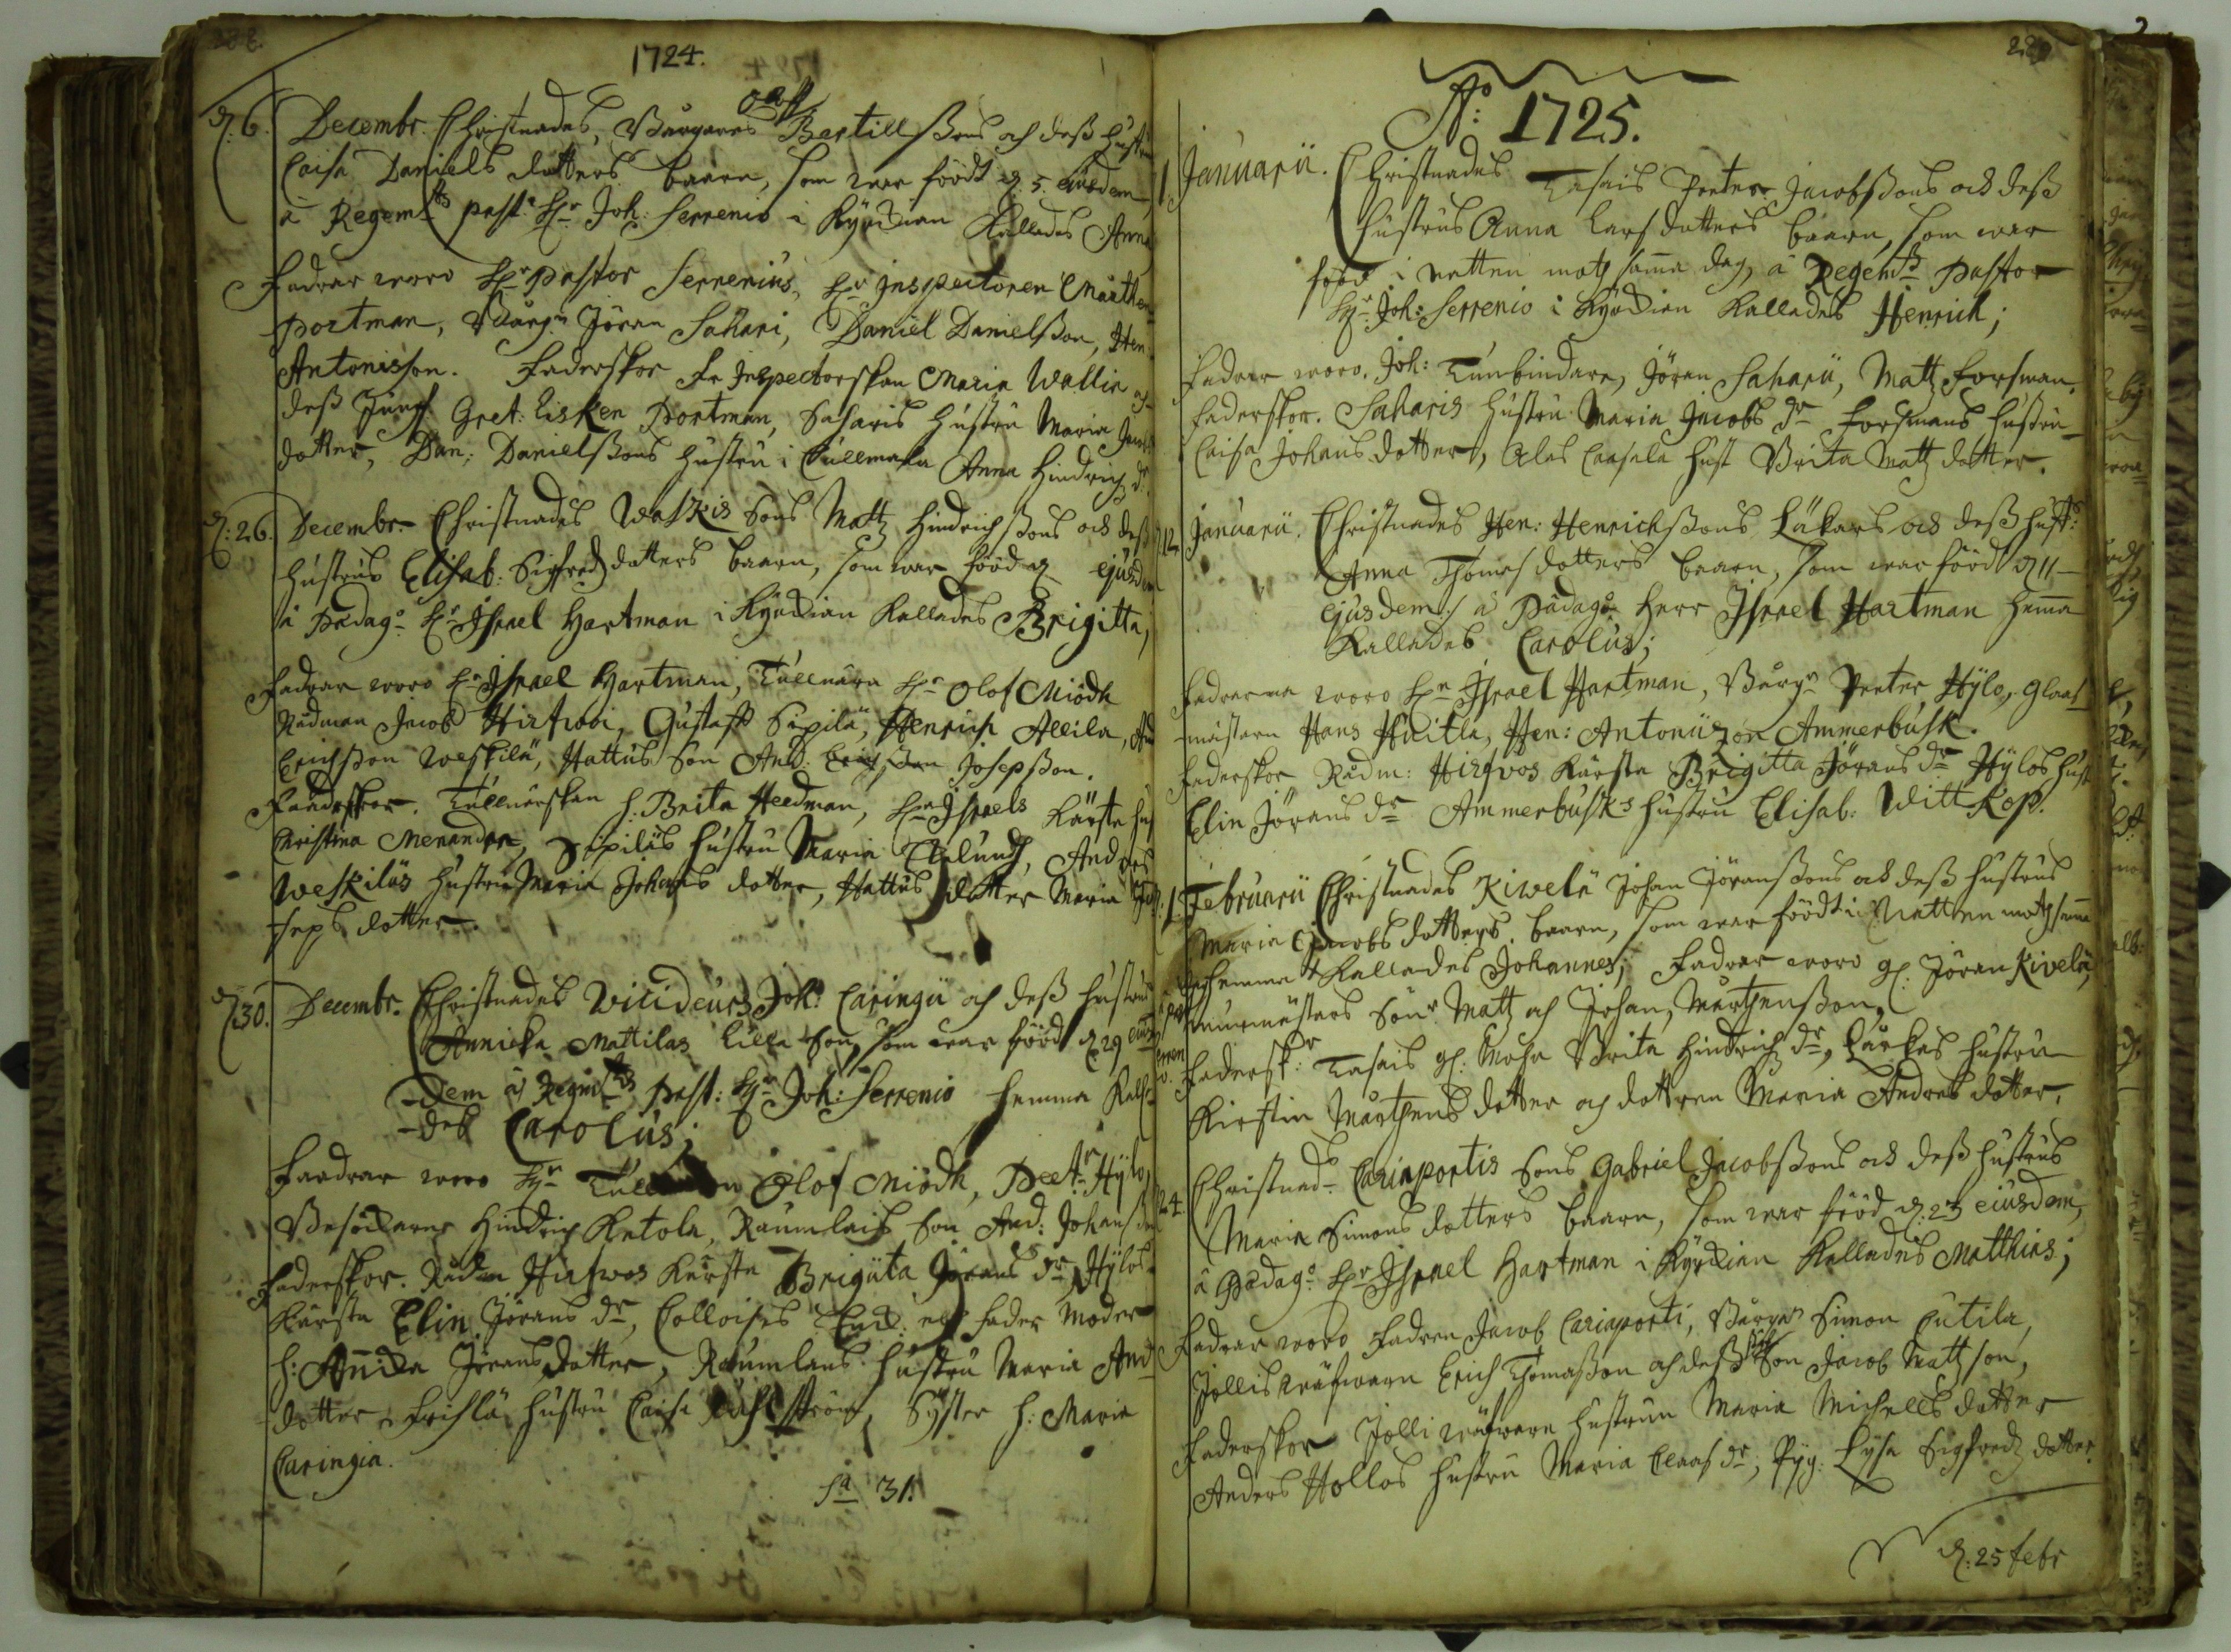 288.
1724.
d. 6. Decembr. Christnades, Bårgares Bertillßons och deß hustrus
Caisa Daniels dotters baarn, som war föödt d. 5. eiusdem
à Regemtts past: Hr Joh: Serrenio i Kyrckian Kallades Anna
Fadrar woro Hr pastor Serrenius, Hr Inspectoren Mårthen
Portman, Bårgn Jöran Sahari, Daniel Danielßon, Hen:
Antonisson. Faderskor Fr Inspectorskan Maria Wallia och
deß Jungf Gret: Lisken Portman, Saharis hustru Maria Jacobs
dotter, Dan: Danielßons hustru i Cullmala Anna Hindrichs dr
d. 26. Decembr. Christnades Waskis Sons Mattz Hindrichßons och deß
hustrus Elisab: Sigfredz dotters baarn, som war född d. ejusdem
à Pædag: Hr Israel Hartman i Kyrckian Kallades Brigitta;
Fadrar woro Hr Israel Hartman, Tullnärn Hr Olof Miödh
Rådman Jacob Hirfwoi, Gustaff Sipilä, Henrich Allila, And
Erichßon Weskilä, Hattus Son And: Josepsson.
Faderskor. Tullnärskan h. Brita Heedman, Hr Israels Kärsta hu
Christina Menander, Sipiläs hustru Maria Ekelundh, Anders
Weskiläs hustru Maria Johans dotter, Hattus dotter Maria Jo
seps dotter.
d. 30. Decembr. Christnades Vicideurs Joh: Caringii och deß hustrus
Annicka Mattilas lilla Son, som war född d. 29 eius
dem à Regmtts past: Hr Joh: Serrenio hemma Kalla
des Carolus;
Faadrar woro Hr Olof Miödh, Peetr Hylo,
Besökaren Hindrich Ketola, Raumlais Son And: Johanson
Faderskor. Rådm Hirfwos Kärsta Brigiita Jörans dr Hylos
Kärsta Elin Jörans dr, Fader Moder
h: Annicka Jörans dotter, Raumlans hustru Maria And
dotter, hustru Caisa Syster h: Maria
Caringia.
Sa 31.
289
Ao: 1725.
1 Januarii. Christnades Tasais Peeter Jacobßons och deß
hustrus Anna Lars dotters baarn, som war
född i natten motz sama dag, à Regemts Pastor
Hr Joh: Serrenio i Kyrckian Kallades Henrich;
Fadrar woro. Joh: Tunbindare, Jöran Saharii, Mattz Forsman.
Faderskor. Saharis hustru Maria Jacobs dr Forsmans hustru
Caisa Johans dotter, Caasala hust Brita Mattz dotter.
12 Januarii. Christnades Hen: Henrichßons Läkars och deß hust:
Anna Thomas dotters baarn, som war född d 11
ejusdem à Pædag: Herr Israel Hartman hema
Kallades Carolus;
Fadrarna woro Hr Israel Hartman, Bårgn Peeter Hylo, Glaas
mästarn Hans Huitla, Hen: Antonii son Ammerbusk.
Faderskor Rådm: Hirfwos Kärsta Brigitta Jörans dr Hylos hust
Elin Jörans dr Ammerbusks hustru Elisab: Wittkop.
1. Februarii Christnades Kiwelä Johan Jöranßons och deß hustrus
Maria Jacobs dotters baarn, som war föödt i Natten motz sama
hemma Kallades Johannes; Fadrar woro gl: Jöran Kivelä,
murmästars Sönr Mattz och Johan Mårthenßon,
Fadersk: Tasais gl: Moor Brita Hindrichs dr, Lurkas hustru
Kirstin Mårthens dotter och dottren Maria Anders dotter.
24 Christnads Cariaportis Sons Gabriel Jacobßons och deß hustrus
Maria Simons dotters baarn, som war född d: 23 eiusdem,
à Pædag: Hr Israel Hartman i Kyrckian Kallades Matthias;
Fadrar woro Fadren Jacob Cariaporti, Bårgn Simon Cutila,
Jollis Erich Thomaßon och deß Son Jacob Mattz son,
Faderskor Jolli hustrun Maria Michells dotter
Anders Hollos hustru Maria Claas dr, Pyg: Lysa Sigfredz dotter.
d. 25 febr